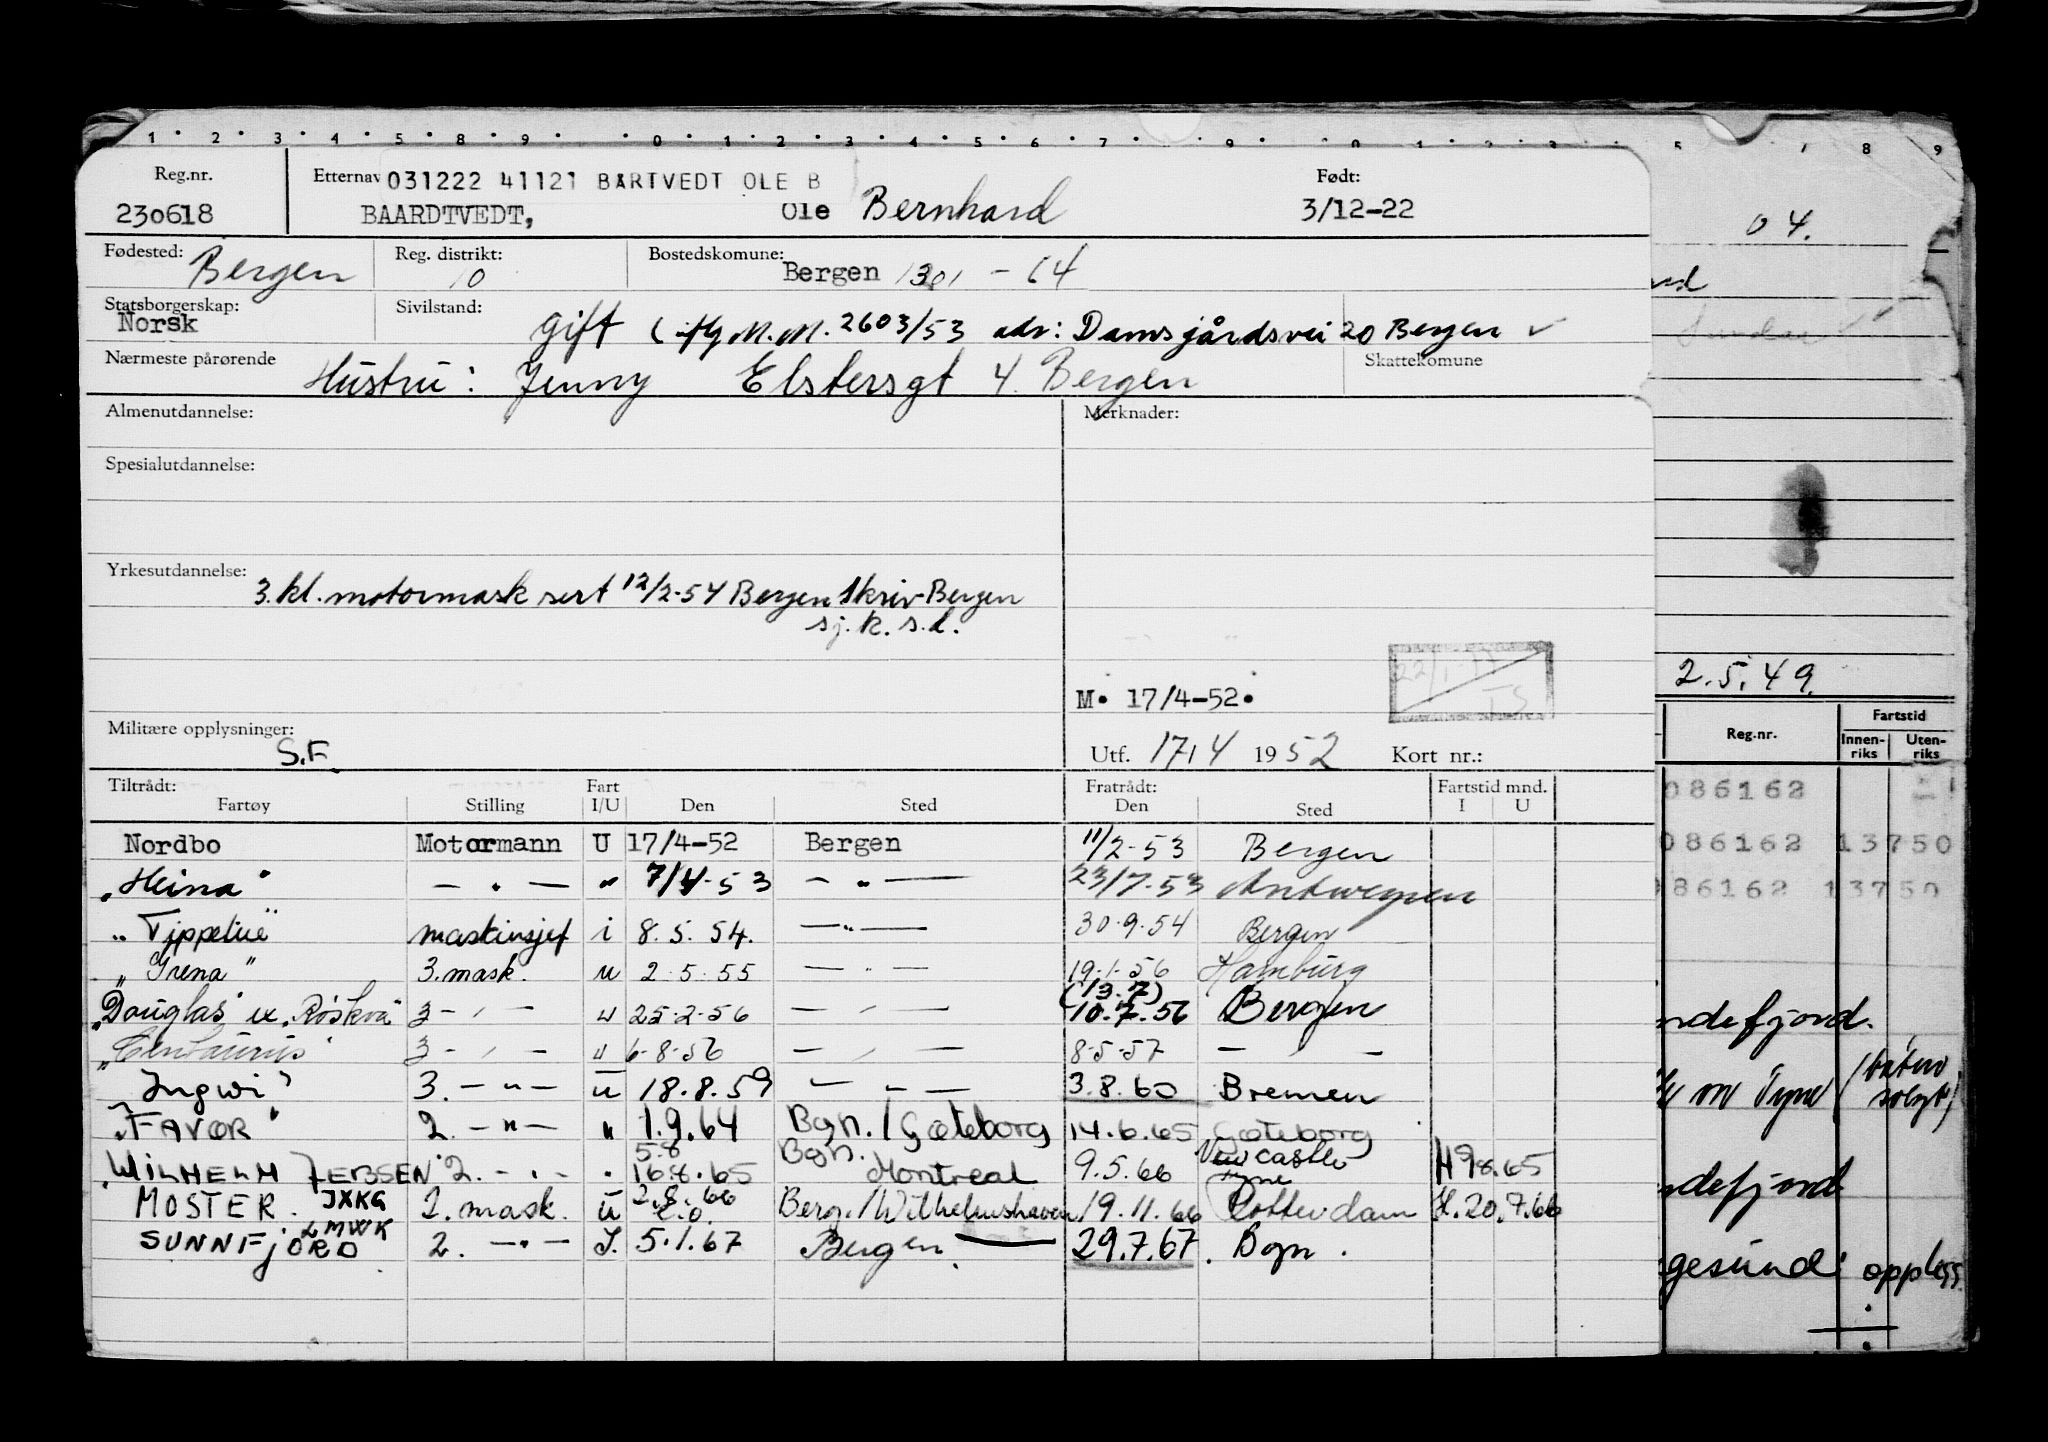 1 2 3 4 5 8 9 0 1 2 3 4 5 6 7 9 0 1 2 3 5 7 8 9
Reg.nr. Etternav 031222 41121 BARTVEDT OLE B Født:
230618 BAARDTVEDT, Ole Bernhard 3/12-22
Fødested: Bergen Reg. distrikt: 10 Bostedskomune: Bergen 1301 - 64
Statsborgerskap: Norsk Sivilstand: gift M.M. 2603/53 adr: Damsgårdsvei 20 Bergen ✓
Nærmeste pårørende Hustru: Jenny Elstersgt 4. Bergen Skattekomune
Almenutdannelse: Merknader:
Spesialutdannelse:
Yrkesutdannelse: 3. kl. motormask sert 12/2-54 Bergen skriv-Bergen
sj.k. s.d.
M. 17/4-52.
Militære opplysninger: S.F. Utf. 17/4 1952 Kort nr.:
Tiltrådt: Fart Fratrådt: Fartstid mnd.
Fartøy Stilling I/U Den Sted Den Sted I U
Nordbo Motormann U 17/4-52 Bergen 11/2-53 Bergen
"Heina" — " — " 7/4-53 — " — 23/7-53 Antwerpen
maskinsjef i 8.5.54. — " — 30.9.54 Bergen
"Irena" 3. mask. u 2.5.55 — " — 19.1.56 Hamburg
(13.7)
"Douglas" ex "Røskva" 3 — " — u 25.2.56 — " — 10.7.56 Bergen
"Centaurus" 3 — " — u 6-8-56 — " — 8-5-57 — " —
"Ingwi" 3. — " — u 18.8.59 — " — 3.8.60 Bremen
"FAVOR" 2. — " — " 1.9.64 Bgn. / Gøteborg 14.6.65 Gøteborg
5.8 Bgn. New castle
"WILHELM JEBSEN" 2. — " — " 16.8.65 Montreal 9.5.66 Tyne H 9.8.65
MOSTER. JXKG 2. mask. u 2.8.66 Berg./Wilhelmshaven 19.11.66 Rotterdam H. 20.7.66
SUNNFJORD LMWK 2. — " — I. 5.1.67 Bergen. 29.7.67. Bgn.
04.
2.5.49.
Reg.nr. Fartstid
Innen-riks Uten-riks
086162
086162 13750
86162 13750
ndefjord.
on Tyne (båten solgt)
ndefjord
gesund opplegg.